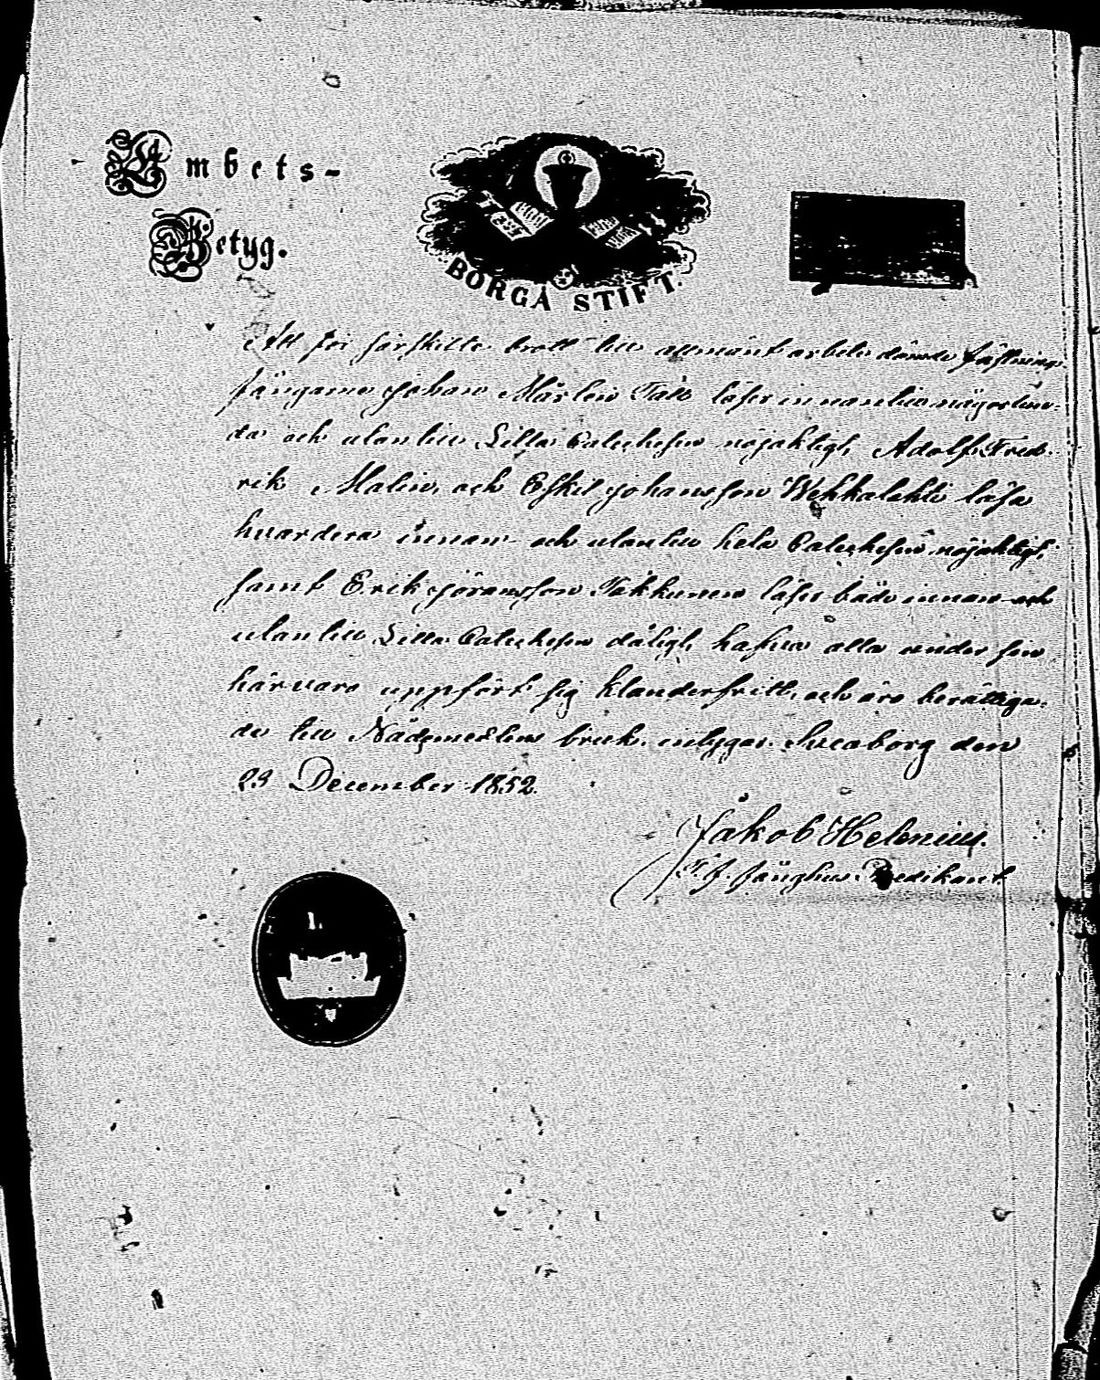 Ambets-
Betyg.
BORGÅ STIFT.
Att för särskilte brott till allmänt arbete dömde fästnings-
fångarne Johan Mårten Tall läser innantill någorlun-
da och utantill Lilla Catechesen nöjaktigt, Adolf Fred-
rik Malin, och Eskil Johansson Wehkalahti läsa
hvardera innan- och utantill hela Catechesen nöjaktigt,
samt Erik Jöransson Takkunen läser både innan- och
utantill Lilla Catechesen dåligt, hafva alla under sin
härvaro uppfört sig klanderfritt, och äro berättiga-
de till Nådemedlens bruk, intygar. Sveaborg den
23 December 1852.
Jakob Helenius.
T. f. fånghus Predikant